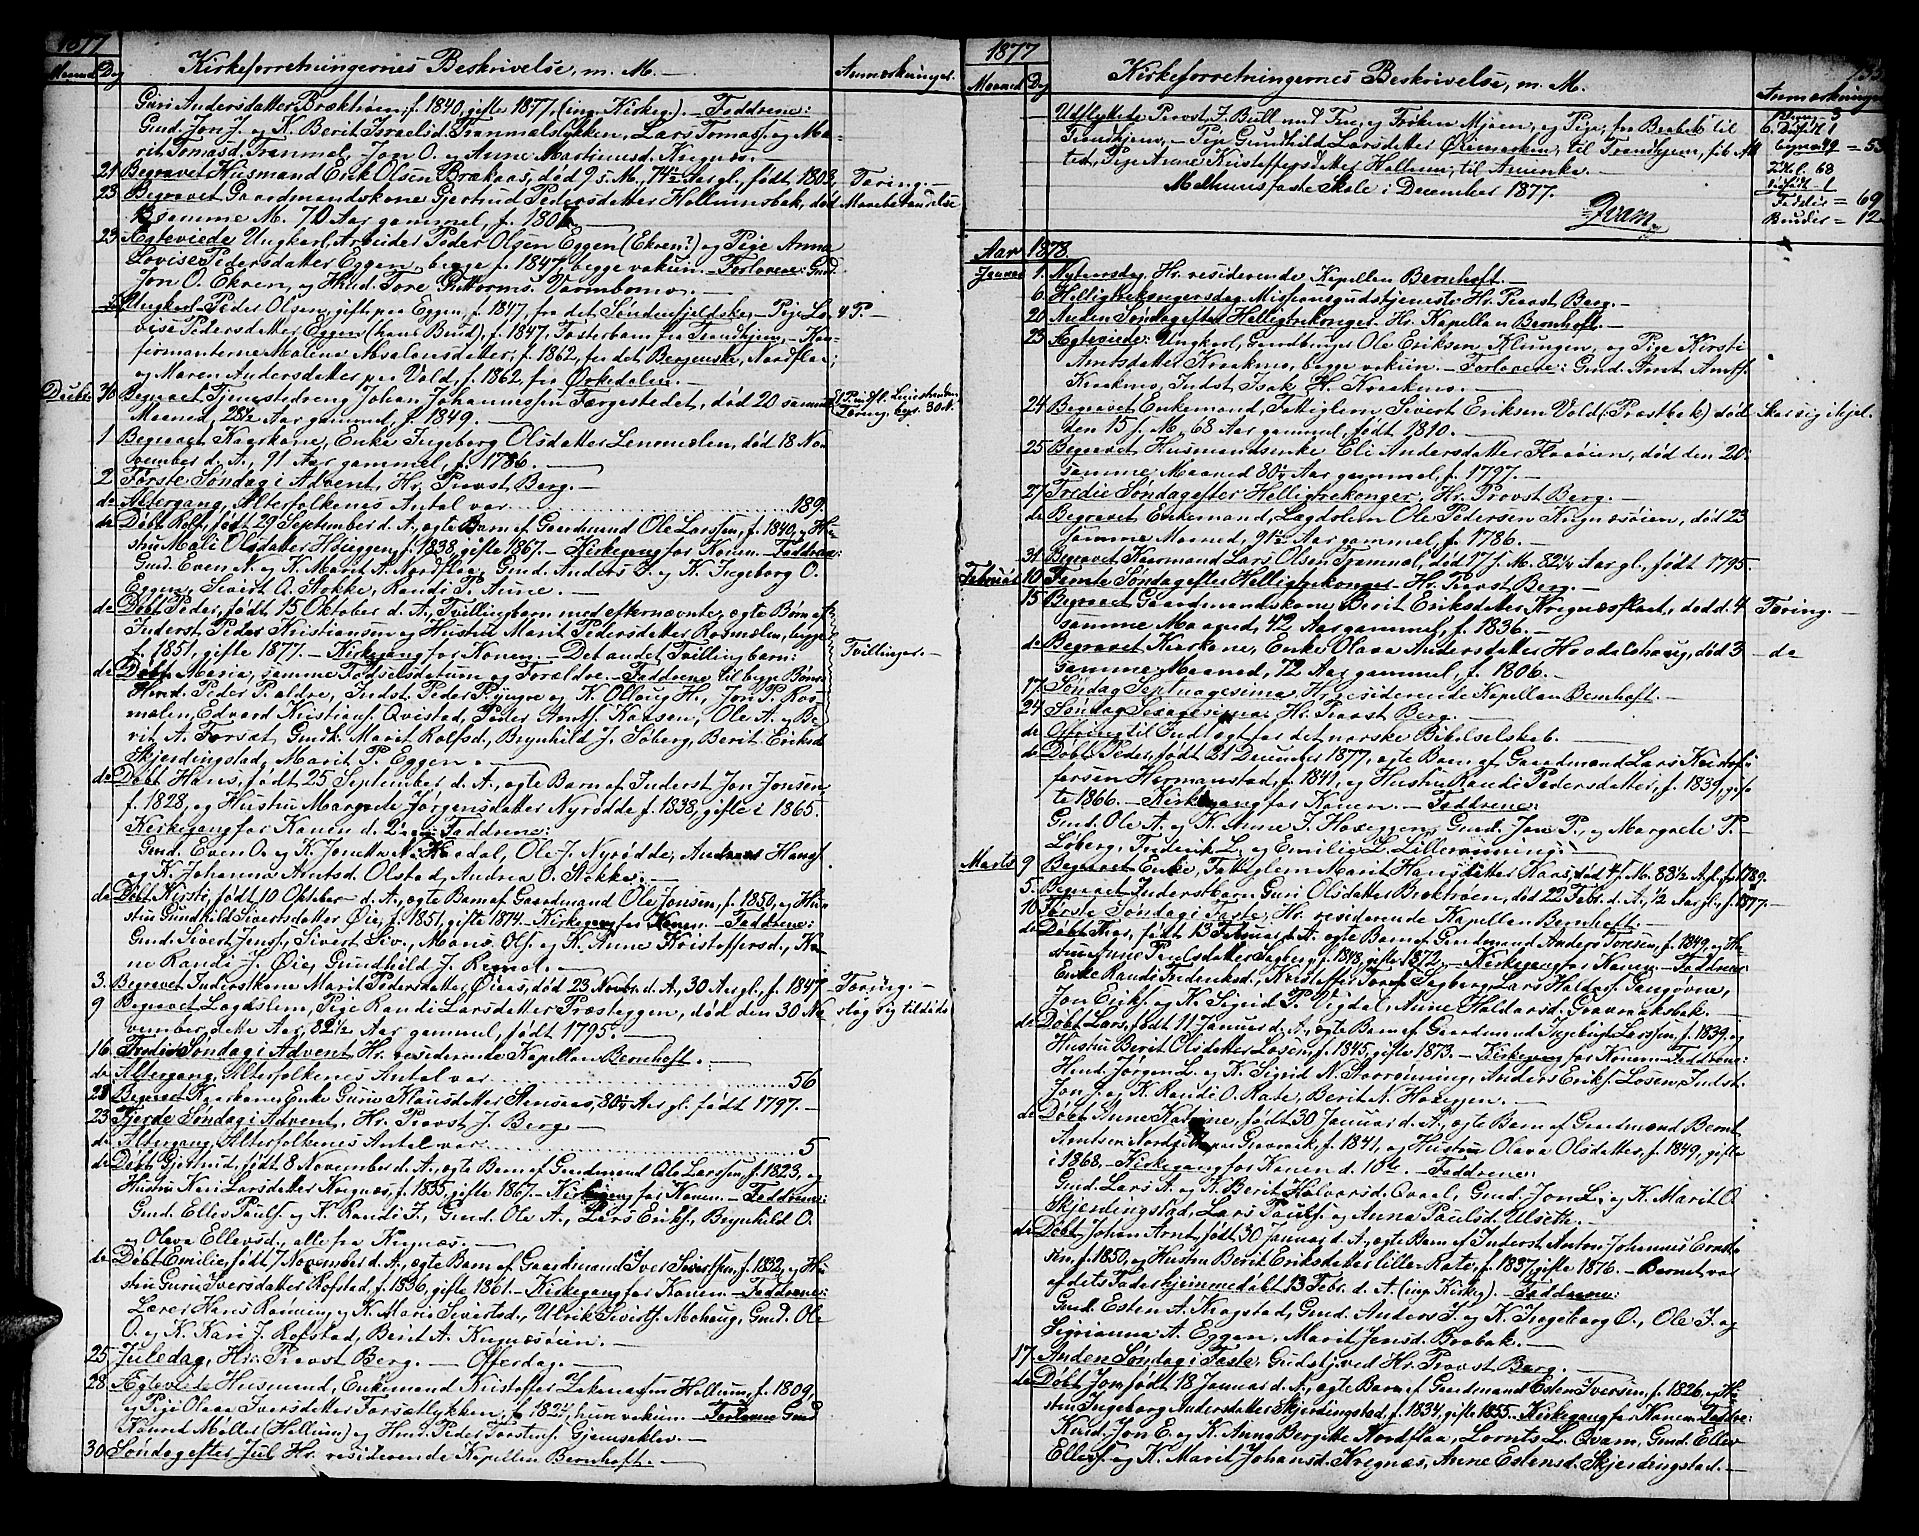 1877
Maaned Dag Kirkeforretningernes Beskrivelse, m. M. Anmærkninger.
Guri Andersdatter Bræktrøen, f. 1840, gifte 1877, (ing. Kirkeg.). — Faddrene:
Gmd. Jon J. og K. Berit Israelsd. Tranmælstykken, Lars Tomasf. og Ma-
rit Tomasd. Tranmæl, Jon O. og Anne Mastiansd. Krignæs.
21 Begravet Husmand Erik Olsen Brækaas, død 9 s. M., 74½ Aar gl., født 1803. Taring. —
23 Begravet Gaardmandskone Gjertrud Pedersdatter Hollumsbak, død
samme M. 70 Aar gammel, f. 1807.
23 Ægteviede Ungkarl, Arbeider Peder Olsen Eggen (Ekren?) og Pige Anna
Lovise Pedersdatter Eggen, begge f. 1847, begge vakun. — Forlovene: Gmd.
Jon O. Ekren, og Hmd. Tore Guttorms. Varmbomo. —
Ungkarl Peder Olsen, gifte paa Eggen, f. 1847, fra det Søndenfjeldske, — Pige Lo- 4 P. —
vise Pedersdatter Eggen (hans Brud), f. 1847, Fosterbarn fra Trondhjem, — Kon-
firmanterne Maline Absalonsdatter, f. 1862, fra det Bergenske, Nordflaa;
og Maren Andersdatter paa Vold, f. 1862, fra Ørkedalen. —
30 Begravet Tjenestedreng Johan Johannessen Færgestedet, død 20 samme
Maaned, 28½ Aar gammel, f. 1849.
Decbr. 1 Begravet Kaarkone, Enke Ingeborg Olsdatter Lemmælen, død 18 No-
vember d. A., 91 Aar gammel, f. 1786. —
2 Første Søndag i Advent, Hr. Provst Berg. —
do Altergang, Alterfolkenes Antal var 189.
do Døbt Rolf, født 29 September d. A., ægte Barn af Gaardmand Ole Larssen, f. 1840, og Hu-
stru Mali Olsdatter Høiggen, f. 1838, gifte 1867. — Kirkegang for Konen. — Faddrene:
Gmd. Even N. og K. Marit A. Nordflaa, Gmd. Anders J. og K. Ingeborg O.
Eggen, Sivert O. Nokke, Randi P. Aune. —
do Døbt Peder, født 15 Oktober d. A., Tvillingbarn med efternævnte, ægte Børn af
Inderst Peder Kristiansen og Hustru Marit Pedersdatter Rosmælen, begge
f. 1851, gifte 1877. — Kirkegang for Konen. — Det andet Tvillingbarn: Tvillinger. —
do Døbt Maria, samme Fødselsdatum og Forældre. — Faddrene til begge Børn:
Hmd. Peder P. Eldre, Indst. Peder P. Rynge og K. Ollaug H., Jon P. Ros-
mælen, Edvard Kristians. Qvistad, Peder Arntf. Kaasen, Ole A. og Be-
rit A. Forsæt, Gmdk. Marit Rolfsd., Brynhild J. Søberg, Berit Eriksd.
Skjerdingstad, Marit P. Eggen. —
do Døbt Hans, født 25 September d. A., ægte Barn af Inderst Jon Jonsen
f. 1828, og Hustru Margrete Jørgensdatter Nyrødde, f. 1838, gifte i 1865.
Kirkegang for Konen d. 2. Faddrene:
Gmd. Even O. og K. Jonetta N. Haadal, Ole J. Nyrødde, Andreas Hansf.
og K. Johanna Arntsd. Olstad, Andrea O. Nokke. —
do Døbt Kirsti, født 10 Oktober — d. A., ægte Barn af Gaardmand Ole Jonsen, f. 1850, og Hu-
stru Gundhild Sivertsdatter Øie, f. 1851, gifte 1874. — Kirkegang for Konen. — Faddrene:
Gmd. Sivert Jensf., Sivert Siv., Mons Olsf. og K. Anne Kristoffersd., Ko-
ne Randi J. Øie, Gundhild J. Remol. —
3. Begravet Inderstkone Marit Pedersdatter Øiaas, død 23 Novbr. d. A., 30 Aar gl., f. 1847. Taring. —
9 Begravet Lægdslem, Pige Randi Larsdatter Prosteggen, død den 30 No- slag sig tildøds
vember dette Aar, 82½ Aar gammel, født 1795. —
16 Tredie Søndag i Advent, Hr. residerende Kapellan Bernhoft. —
do Altergang, Alterfolkenes Antal var 56
Begravet Kaarkone, Enke Guru Klausdatter Stensaas, 80¼ Aar gl., født 1797. —
23 Fjerde Søndag i Advent, Hr. Provst J. Berg. —
do Altergang, Alterfolkenes Antal var 5
do Døbt Gjertrud, født 8 November d. A., ægte Barn af Gaardmand Ole Larssen, f. 1823, og
Hustru Kari Larsdatter Krignæs, f. 1835, gifte 1867. — Kirkegang for Konen. — Faddrene:
Gmd. Ellev Paulsf. og K. Randi I., Gmd. Ole A., Lars Eriksf., Brynhild O.
og Olava Ellevsd., alle fra Krignæs. —
do Døbt Emilie, født 7 November d. A., ægte Barn af Gaardmand Iver Sivertsen, f. 1832, og Hu-
stru Guru Iversdatter Rofstad, f. 1836, gifte 1861. — Kirkegang for Konen. — Faddrene:
Lærer Hans Rønning og K. Mari Sivertsd., Ulrik Sivertf. Mohaug, Gmd. Ole
O. og K. Kari J. Rofstad, Berit A. Krignæsøien. —
25 Juledag, Hr. Provst Berg. — Offerdag. —
28 Ægteviede Husmand, Enkemand Kristoffer Zakariassen Hollum, f. 1809,
og Pige Olava Iversdatter Forsætlykken, f. 1824, hun vakun. — Forlovene Gmd.
Konrad Møller (Hollum) og Hmd. Peder Torstens. Gjemseklev. —
30 Søndag efter Jul Hr. residerende Kapellan Bernhoft. —
1877
Maaned Dag Kirkeforretningernes Beskrivelse, m. M. Anmærkninger
Udflyttede Provst J. Bull med Frue, og Frøken Mjøen, og Pige, fra Brubak til
Trondhjem, — Pige Gundhild Larsdatter Øiemarken, til Trondhjem, fik At-
test, Pige Anne Kristoffersdatter Hollum, til Amerika. —
Melhuus faste Skole i December 1877.
Qvam.
Aar 1878.
Januar 1. Nytaarsdag, Hr. residerende Kapellan Bernhoft. —
6 Helligtrekongersdag Missionsgudstjeneste Hr. Provst Berg. —
20 Anden Søndag efter Helligtrekonger. Hr. Kapellan Bernhoft. —
23 Ægteviede: Ungkarl, Gaardbruger Ole Eriksen Klungen, og Pige Kirsti
Arntsdatter Kraakmo, begge vakun. — Forlovene: Gmd. Arnt Arntf.
Kraakmo, Indst. Isak H. Kraakmo. —
24 Begravet Enkemand, Fattiglem Sivert Eriksen Vold (Prostbak) død Skar sig ihjel.
den 15 s. M., 68 Aar gammel, født 1810. —
25 Begravet Husmandsenke Eli Andersdatter Flaaøien, død den 20
samme Maaned 80½ Aar gammel, f. 1797. —
27 Tredie Søndag efter Helligtrekonger, Hr. Provst Berg. —
do Begravet Enkemand, Lægdslem Ole Pedersen Krignæsøien, død 23
samme Maaned, 91½ Aar gammel, f. 1786. —
31 Begravet Kaarmand Lars Olsen Tranmæl, død 17 s. M. 82¼ Aar gl., født 1795. —
Februar 10 Femte Søndag efter Helligtrekonger. Hr. Provst Berg. —
15 Begravet Gaardmandskone Berit Eriksdatter Krignæsflaat, død d. 4 Taring. —
samme Maaned, 42 Aar gammel, f. 1836. —
do Begravet Kaarkone, Enke Olava Andersdatter Haadalshaug, død 3 do
samme Maaned, 72 Aar gammel, f. 1806. —
17 Søndag Septuagesima Hr. residerende Kapellan Bernhoft. —
24 Søndag Sexagesima, Hr. Provst Berg. —
do Ofring til Indtægt for det norske Bibelselskab. —
do Døbt Peder, født 21 December 1877, ægte Barn af Gaardmand Lars Kristof-
fersen Hermanstad, f. 1841, og Hustru Randi Pedersdatter, f. 1839, gif-
te 1866. — Kirkegang for Konen. — Faddrene:
Gmd. Ole A. og K. Anne J. Høxeggen, Gmd. Jon P. og Margrete P.
Løberg, Frederik L. og Emilie L. Lillerønning. —
Marts 9 Begravet Enke, Fattiglem Marit Hansdatter Kaas, død 4 f. M. 88½ A. gl. f. 1789.
5. Begravet Inderstbarn Guri Olsdatter Bræktrøen, død 22 Feb. d. A., ½ Aar gl., f. 1877. —
10 Første Søndag i Faste, Hr. residerende Kapellan Bernhoft. —
do Døbt Thor, født 13 Februar d. A., ægte Barn af Gaardmand Anders Toresen, f. 1849, og Hu-
stru Anne Paulsdatter Sagberg, f. 1848, gifte 1872. — Kirkegang for Konen. — Faddrene
Enke Randi Frederiksd., Kristoffer Toresf. Sagberg, Lars Haldorf. Fangøvne,
Jon Eriksf. og K. Sigrid P. Vigdal, Anne Haldorsd. Gravraaksbak. —
do Døbt Lars, født 11 Januar d. A., ægte Barn af Gaardmand Ingebrigt Larssen, f. 1839, og
Hustru Berit Olsdatter Losen, f. 1845, gifte 1873. — Kirkegang for Konen. — Faddrene:
Hmd. Jørgen L. og K. Sigrid N. Storrønning, Anders Eriksf. Losen, Indst.
Jon J. og K. Randi O. Rate, Berit N. Høxeggen. —
do Døbt Anne Katrine, født 30 Januar d. A., ægte Barn af Gaardmand Bernt
Arntsen Nordsæter paa Gravraak, f. 1841, og Hustru Olava Olsdatter, f. 1849, gifte
i 1868. — Kirkegang for Konen d. 10. — Faddrene:
Gmd. Lars A. og K. Berit Halvorsd. Qvaal, Gmd. Jon L. og K. Marit O.
Skjerdingstad, Lars Paulsf. og Anna Paulsd. Ulseth. —
do Døbt Johan Arnt, født 30 Januar d. A., ægte Barn af Inderst Anton Johannes Ernt-
sen, f. 1850, og Hustru Berit Eriksdatter lille Rate, f. 1837, gifte 1876. — Barnet var
af dets Fader hjemmedøbt 13 Febr. d. A. (ing. Kirkg.). — Faddrene:
Gmd. Esten A. Krogstad, Gmd. Anders J. og K. Ingeborg O., Ole J. og
Sigrianna A. Eggen, Marit Jensd. Brubak. —
17. Anden Søndag i Faste, Gudstj. ved Hr. Provst Berg. —
do Døbt Jon, født 18 Januar d. A., ægte Barn af Gaardmand Esten Iversen, f. 1826, og Hu-
stru Ingeborg Andersdatter Skjerdingstad, f. 1834, gifte 1855. Kirkegang for Konen. Faddre:
Kmd. Jon E. og K. Anna Bergitte Nordflaa, Lornts L. Qvam, Gmd. Ellev
Ellevsf. og K. Marit Johansd. Krignæs, Anne Estensd. Skjerdingstad. —